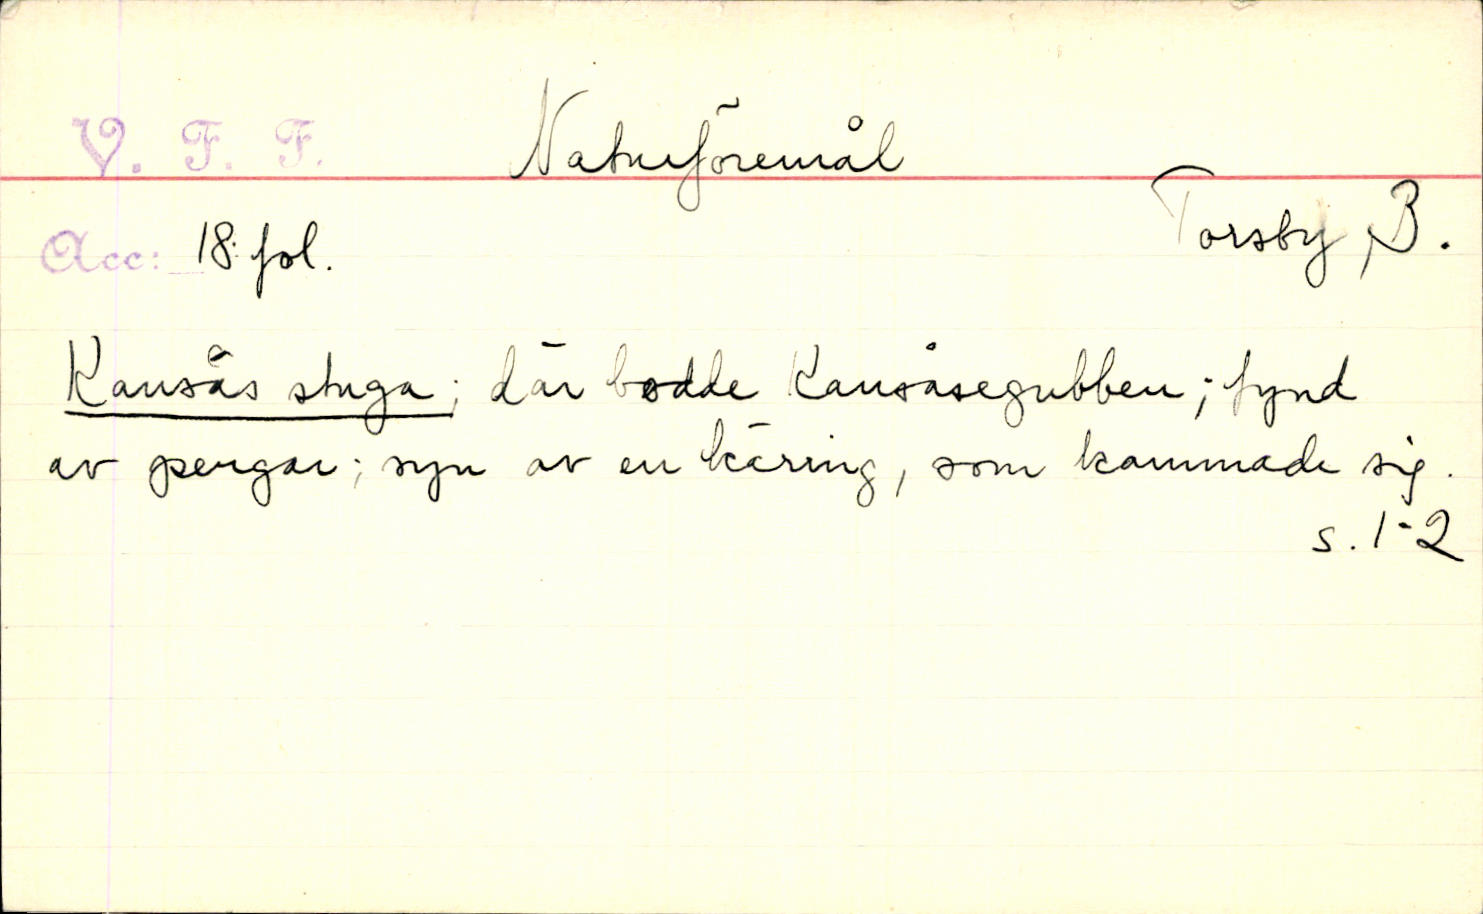 V. F. F. Naturföremål
Acc: 18: fol. Torsby, B.
Kansås stuga; där bodde Kansåsegubben; fynd
av pengar; syn av en käring, som kammade sig.
s. 1-2